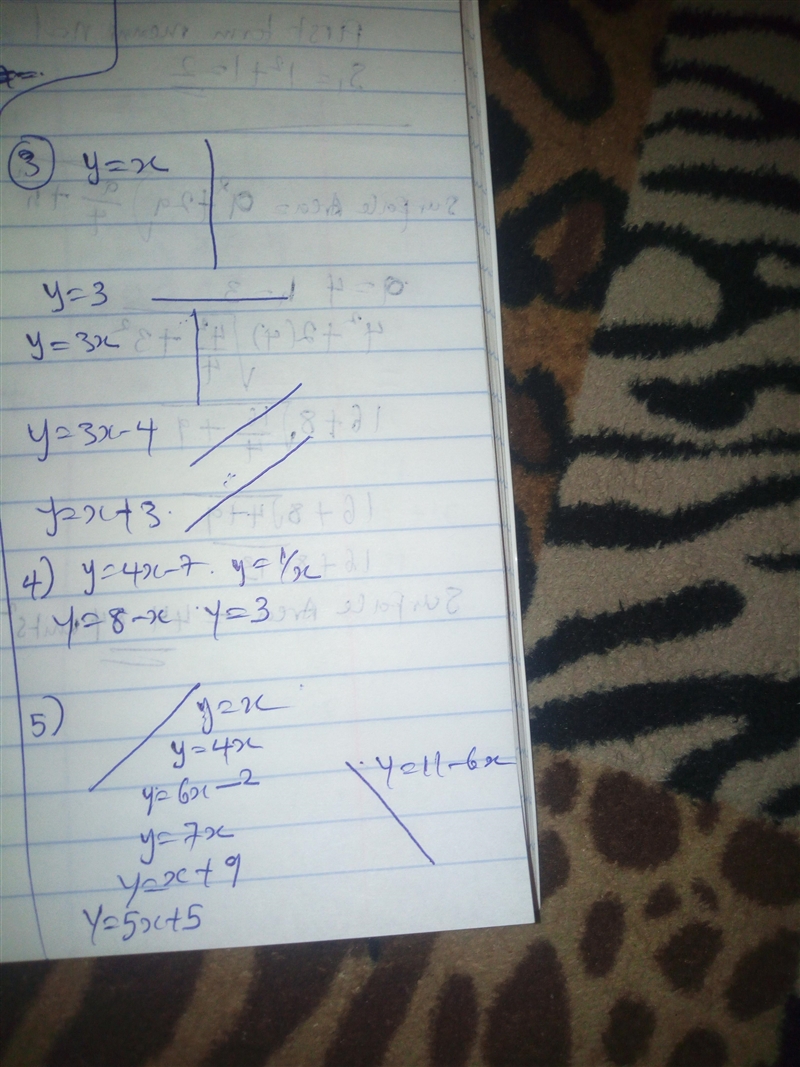 ③ y=x
y=3
y=3x
y=3x-4
y=x+3.
4) y=4x-7. y=1/x
y=8-x y=3
5) y=x
y=4x
y=6x-2
y=11-6x
y=7x
y=x+9
y=5x+5